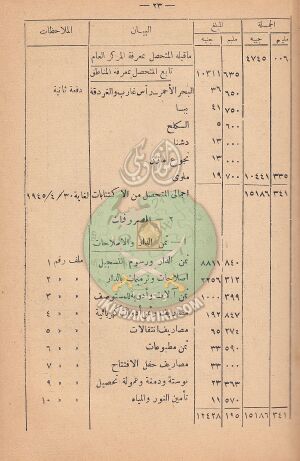 — ٢٣ —
الجملة المبلغ البيان الملاحظات
مليم جنيه مليم جنيه
٠٠٦ ٤٧٤٥ ماقبله المتحصل بمعرفة المركز العام
٦٣٥ ١٠٣١١ تابع المتحصل بمعرفة المناطق
٦٥٠ ٣٦ البحر الأحمر رأس غارب والغردقة دفعة ثانية
٧٥٠ ٤١ ببا
٦٠٠ ٥ السكلح
٠٠٠ ١٣ دشنا
٠٠٠ ١٣ نجوع
٣٣٥ ١٠٤٤١ ٧٠٠ ١٩ ملوى
٣٤١ ١٥١٨٦ اجمالى المتحصل من الاكتتابات لغاية ١٩٤٥/٤/٣٠
٢ — المصروفات
ا — ثمن الدار والاصلاحات
٨٤٠ ٨٨١١ ثمن الدار ورسوم التسجيل ملف رقم ١
٣١٢ ٢٢٥٦ اصلاحات وترميمات بالدار » » ٢
٣٩٩ ثمن أثاث وأدوات » » ٣
٨٤٧ ١٩٢ » » ٤
٢٧٥ ٦٥ مصاريف انتقالات » » ٥
٥٩٠ ٣٣ ثمن مطبوعات » » ٦
٠٠٠ ٣٣ مصاريف حفل الافتتاح » » ٧
٣٦٣ ٢٣ بوستة ودمغة وعمولة تحصيل » » ٩
٥٧٠ ١١ تأمين النور والمياه » » ١٠
٣٤١ ١٥١٨٦ ١٩٥ ١٢٤٢٨